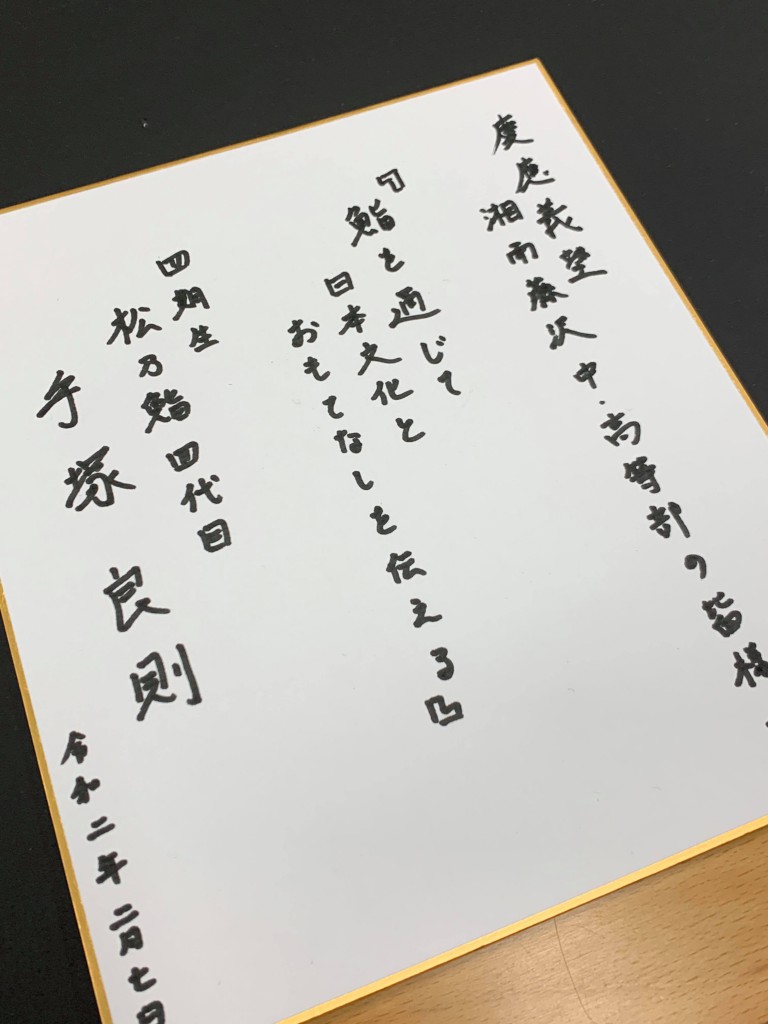 慶應義塾
湘南藤沢中・高等部の皆様
『鮨を通じて
日本文化と
おもてなしを伝える』
四期生
松乃鮨四代目
手塚良則
令和二年二月七日